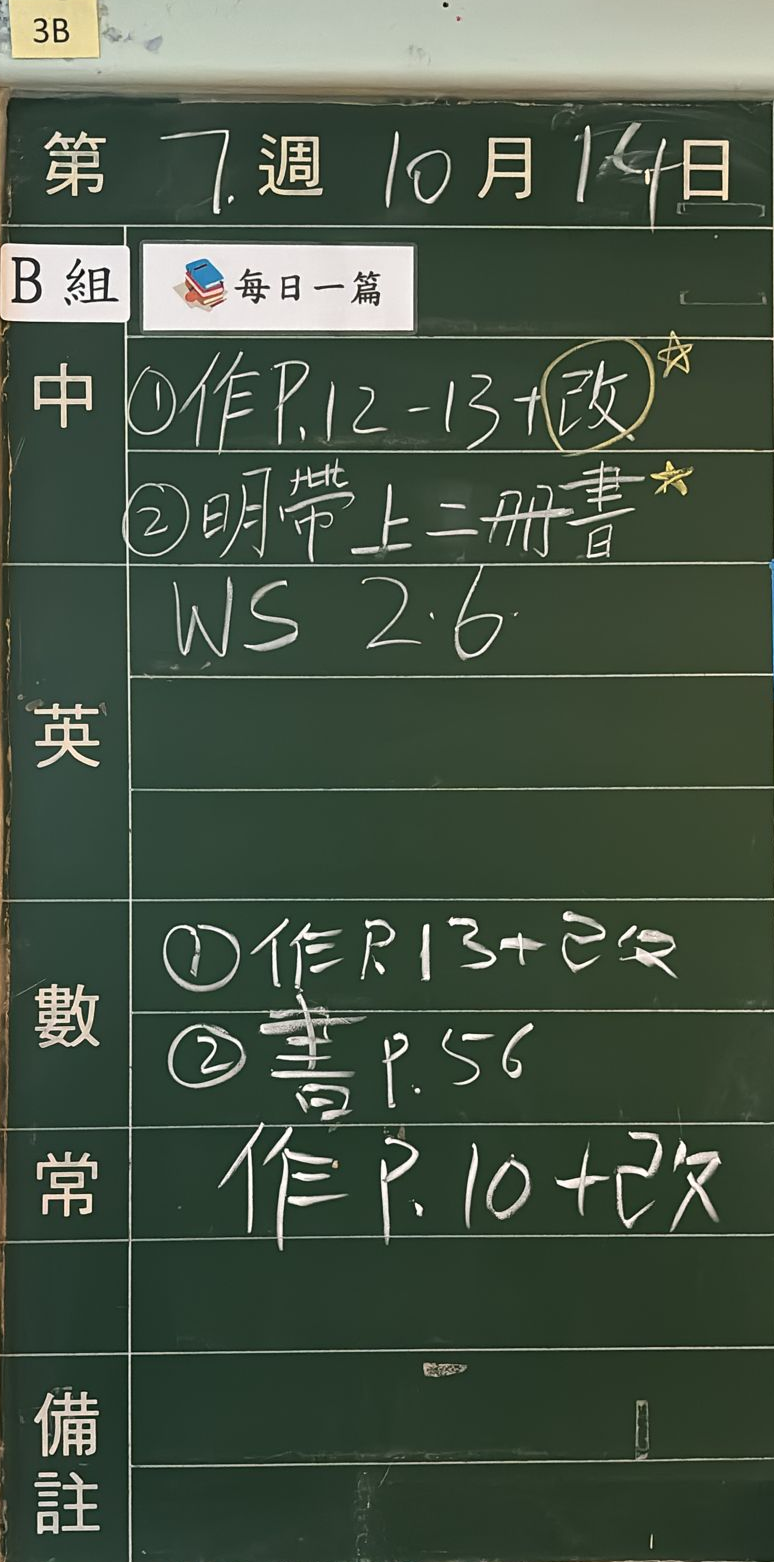 3B
第 7. 週 10 月 14 日
B 組 每日一篇
中 ①作P.12-13+改
②明帶上二冊書
英 WS 2.6
數 ①作P.13+改
②書P.56
常 作P.10+改
備註